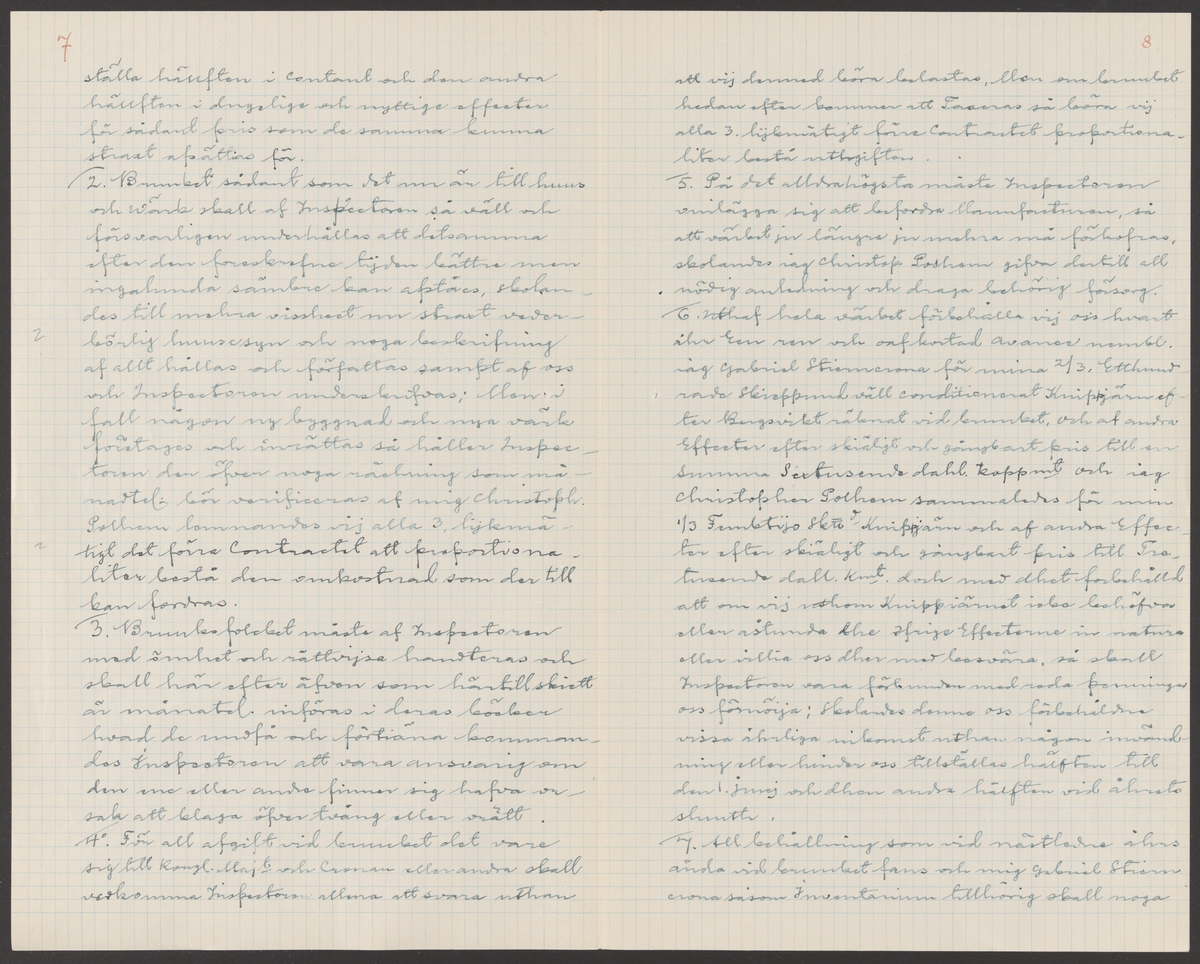 7
ställa hälfften i Contant och den andra
hälfften i dugelige och nyttige effecter
för sådant pris som de samma kunna
straxt afsättias för.
2. Bruuket sådant som det nu är till huus
och Wärk skall af Inspectoren så väll och
försvarligen underhållas att detsamma
efter den foreskrefne tijden bättre men
ingalunda sämbre kan afstäes, skolan-
des till mehra vissheet nu straxt veder-
börlig huusesyn och noga beskrifning
af allt hållas och författas sampt af oss
och Inspectoren underskrifvas; Men i
fall någon ny byggnad och nya värk
företages och inrättas så håller Inspec-
toren der öfver noga räckning som må-
nadtel. bör verificeras af mig Christoph.
Polhem kommandes vij alla 3, lijkmä-
tigt det förra Contractet att proportiona-
liter bestå den omkostnad som der till
kan fordras.
3. Bruuksfolcket måste af Inspectoren
med ömhet och rättvijsa handteras och
skall här efter äfven som härtill skiett
är månatel. införas i deras böcker
hvad de undfå och förtiäna komman-
des Inspectoren att vara ansvarig om
den ene eller andre finner sig hafva or-
sak att klaga öfver tvång eller orätt.
4º. För all afgift vid bruuket det vare
sig till Kongl. Maj:t och Cronan eller andra skall
vedkomma Inspectoren allena att svara uthan
2
2
8
att vij dermed böra belastas, Men om bruuket
hedan efter kommer att Taxeras så böra vij
alla 3. lijkmätigt förre Contractet proportiona-
liter bestå uthgiften.
5. På det alldrahögsta måste Inspectoren
vinlägga sig att befordra Manufacturen, så
att värket ju längre ju mehra må förkofras,
skolandes iag Christof Polhem gifva dertill all
nödig anledning och draga behörig försorg.
6. Uthaf hela värket förbehålla vij oss hvart
åhr Een ren och oafkortad avance nembl.
iag Gabriel Stierncrona för mina 2/3. Etthund
rade Skieppund väll conditionerat Knippjärn ef-
ter Bergsvikt räknat vid bruuket, och af andra
Effecter efter skiäligt och gångbart pris till en
summa Sextusende dahl. Koppmt och iag
Christopher Polhem sammaledes för min
1/3 Femktijo Sktd Knippjärn och af andra Effec-
ter efter skiäligt och gångbart pris till Tre-
tusende dall. Kmt. doch med dhet forbehålld
att om vij uthom Knippjärnet icke behöfva
eller åstunda the öfrige Effecterne in natura
eller villia oss dher med besvära, så skall
Inspectoren vara förbunden med reda penningar
oss förnöija; Skolandes denne oss förbehåldne
vissa åhrliga inkomst uthan någon invänd
ning eller hinder oss tillställas hälften till
den 1. Junij och dhen andra hälften vid åhrets
sluuth.
7. All behållning som vid nästledne åhrs
ända vid bruuket fans och mig Gabriel Stiern
crona såsom Inventarium tillhörig skall noga